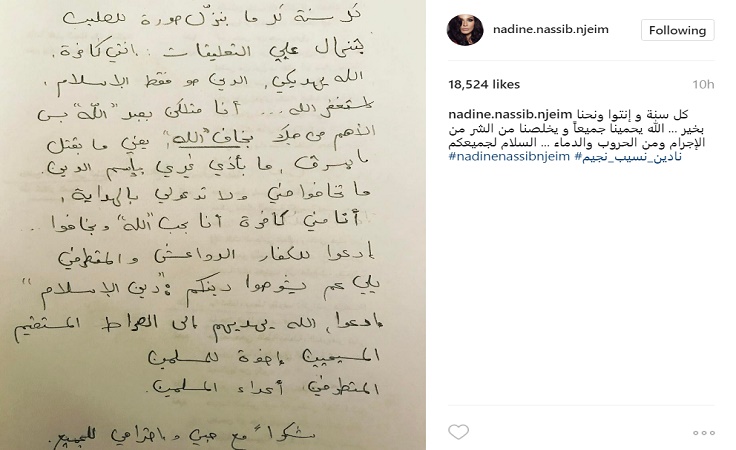 كل سنة لما بنزّل صورة للصليب
بتنهال عليي التعليقات : انتي كافرة,
الله يهديكي, الدين هو فقط الاسلام,
استغفر الله ... أنا متلكن بعبد "الله" بس
الأهم من هيك بخاف "الله", يعني ما بقتل
ما بسرق, ما بأذي غيري بإسم الدين.
ما تخافوا مني ولا تدعولي بالهداية,
أنا مني كافرة أنا بحب "الله" وبخافوا ..
إدعوا للكفار الدواعش والمتطرفين
يلي عم يشوهوا دينكم : "دين الإسلام"
إدعوا, الله يهديهم إلى الصراط المستقيم
المسيحيين إخوة للمسلمين
المتطرفين أعداء المسلمين.
شكراً مع حبي واحترامي للجميع.
nadine.nassib.njeim
Following
18,524 likes
10h
nadine.nassib.njeim كل سنة و إنتوا ونحنا
بخير ... الله يحمينا جميعاً و يخلصنا من الشر من
الإجرام ومن الحروب والدماء ... السلام لجميعكم
#nadinenassibnjeim #نادين_نسيب_نجيم